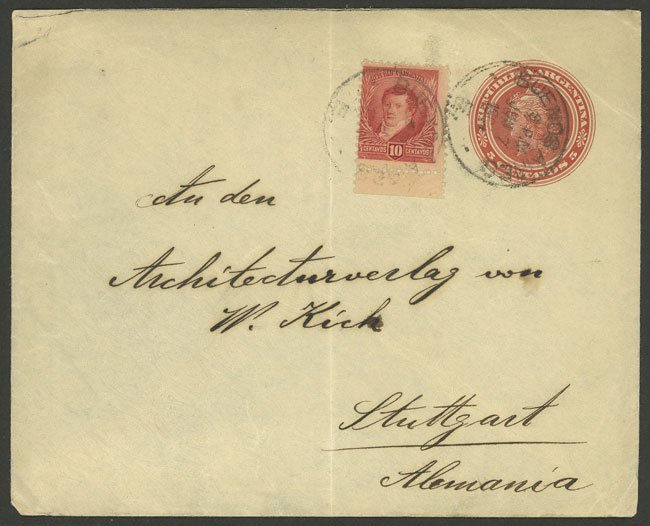 REPUBLICA ARGENTINA
CENTAVOS 10 CENTAVOS
BUENOS
5 CENTAVOS 5
An den
Architecturverlag von
W. Kick
Stuttgart
Alemania